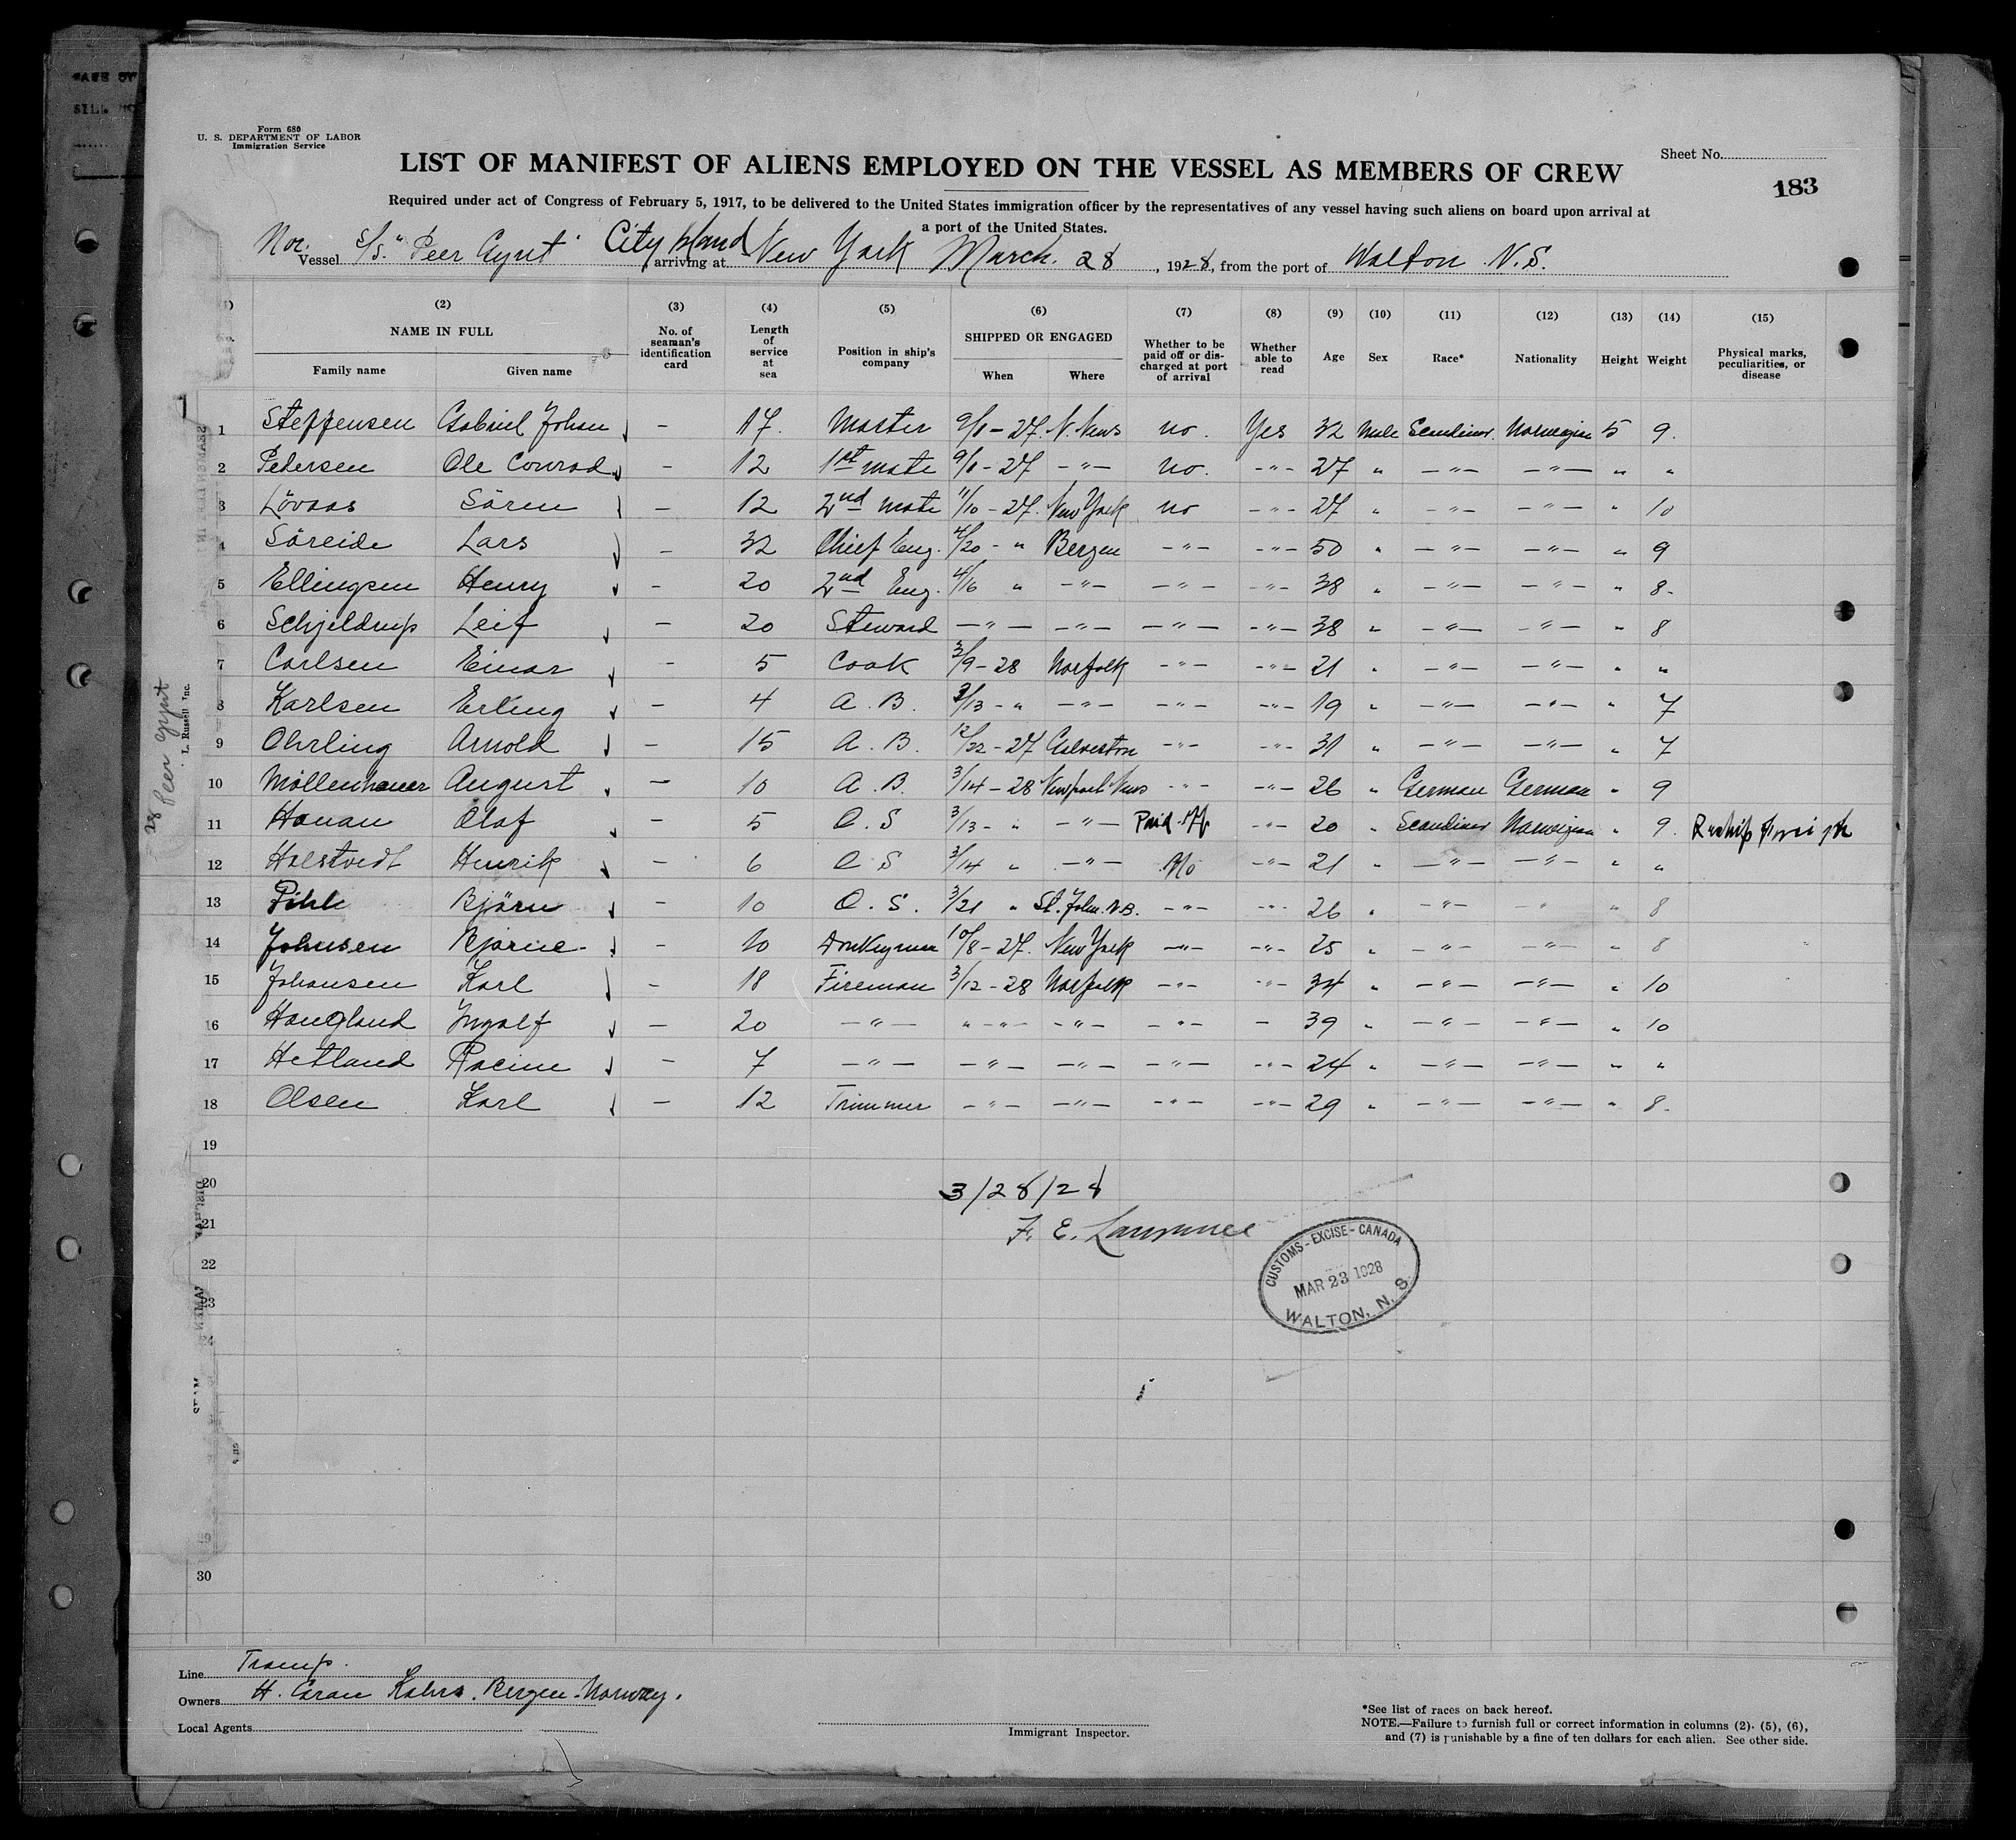 Form 680
U. S. DEPARTMENT OF LABOR
Immigration Service
Sheet No.
LIST OF MANIFEST OF ALIENS EMPLOYED ON THE VESSEL AS MEMBERS OF CREW
183
Required under act of Congress of February 5, 1917, to be delivered to the United States immigration officer by the representatives of any vessel having such aliens on board upon arrival at
a port of the United States.
Nor. Vessel S/S. "Peer Gynt" City Island arriving at New York March. 28, 1928, from the port of Walton N.S.
(2) (3) (4) (5) (6) (7) (8) (9) (10) (11) (12) (13) (14) (15)
NAME IN FULL No. of seaman's identification card Length of service at sea Position in ship's company SHIPPED OR ENGAGED Whether to be paid off or discharged at port of arrival Whether able to read Age Sex Race* Nationality Height Weight Physical marks, peculiarities, or disease
Family name Given name When Where
1 Steffensen Gabriel Johan – 17. Master 9/8-27. N. News no. Yes 32 Male Scandinav. Norwegian 5 9.
2 Pedersen Ole Conrad – 12 1st mate 9/8-27 -"- No. -"- 27 " -"- -"- " "
3 Lövaas Sören – 12 2nd mate 11/10-27. New York no -"- 27 " -"- -"- " 10
4 Söreide Lars – 32 Chief Eng. 4/20 - " Bergen -"- -"- 50 " -"- -"- " 9
5 Ellingsen Henry – 20 2nd Eng. 4/16 " -"- -"- -"- 38 " -"- -"- " 8-
6 Schjeldrup Leif – 20 Steward -"- -"- -"- -"- 38 " -"- -"- " 8
7 Carlsen Einar – 5 Cook 3/9-28 Norfolk -"- -"- 21 " -"- -"- " "
8 Karlsen Erling – 4 A. B. 3/13-" -"- -"- -"- 19 " -"- -"- " 7
9 Ohrling Arnold – 15 A. B. 12/22-27 Galveston -"- -"- 31 " -"- -"- " 7
10 Möllenhauer August – 10 A. B. 3/14-28 Newport News -"- -"- 26 " German German " 9
11 Hanan Olaf – 5 O. S 3/13- " -"- Paid Off -"- 20 " Scandinav Norwegian " 9. Reship foreign
12 Halstvedt Henrik – 6 O S 3/14 " -"- No -"- 21 " -"- -"- " "
13 Pihle Björn – 10 O. S. 3/21 " St. John. N.B. -"- -"- 26 " -"- " " 8
14 Johnsen Bjarne – 10 Donkeyman 10/8-27. New York -"- -"- 25 " -"- -"- " 8
15 Johansen Karl – 18 Fireman 3/12-28 Norfolk -"- -"- 34 " -"- -"- " 10
16 Haugland Ingolf – 20 -"- "-"- -"- -"- – 39 " -"- -"- " 10
17 Hetland Racine – 7 -"- -"- -"- -"- -"- 24 " -"- -"- " "
18 Olsen Karl – 12 Trimmer -"- -"- -"- -"- 29 " -"- -"- " 8-
19
20
3/28/28
21
F. E. Lawrence
22
23
24
30
CUSTOMS-EXCISE-CANADA
MAR 23 1928
WALTON, N. S.
28 Peer Gynt
L. Russell Inc.
Line Tramp.
Owners H. Gran Kahrs. Bergen-Norway.
Local Agents
Immigrant Inspector.
*See list of races on back hereof.
NOTE.—Failure to furnish full or correct information in columns (2), (5), (6),
and (7) is punishable by a fine of ten dollars for each alien. See other side.